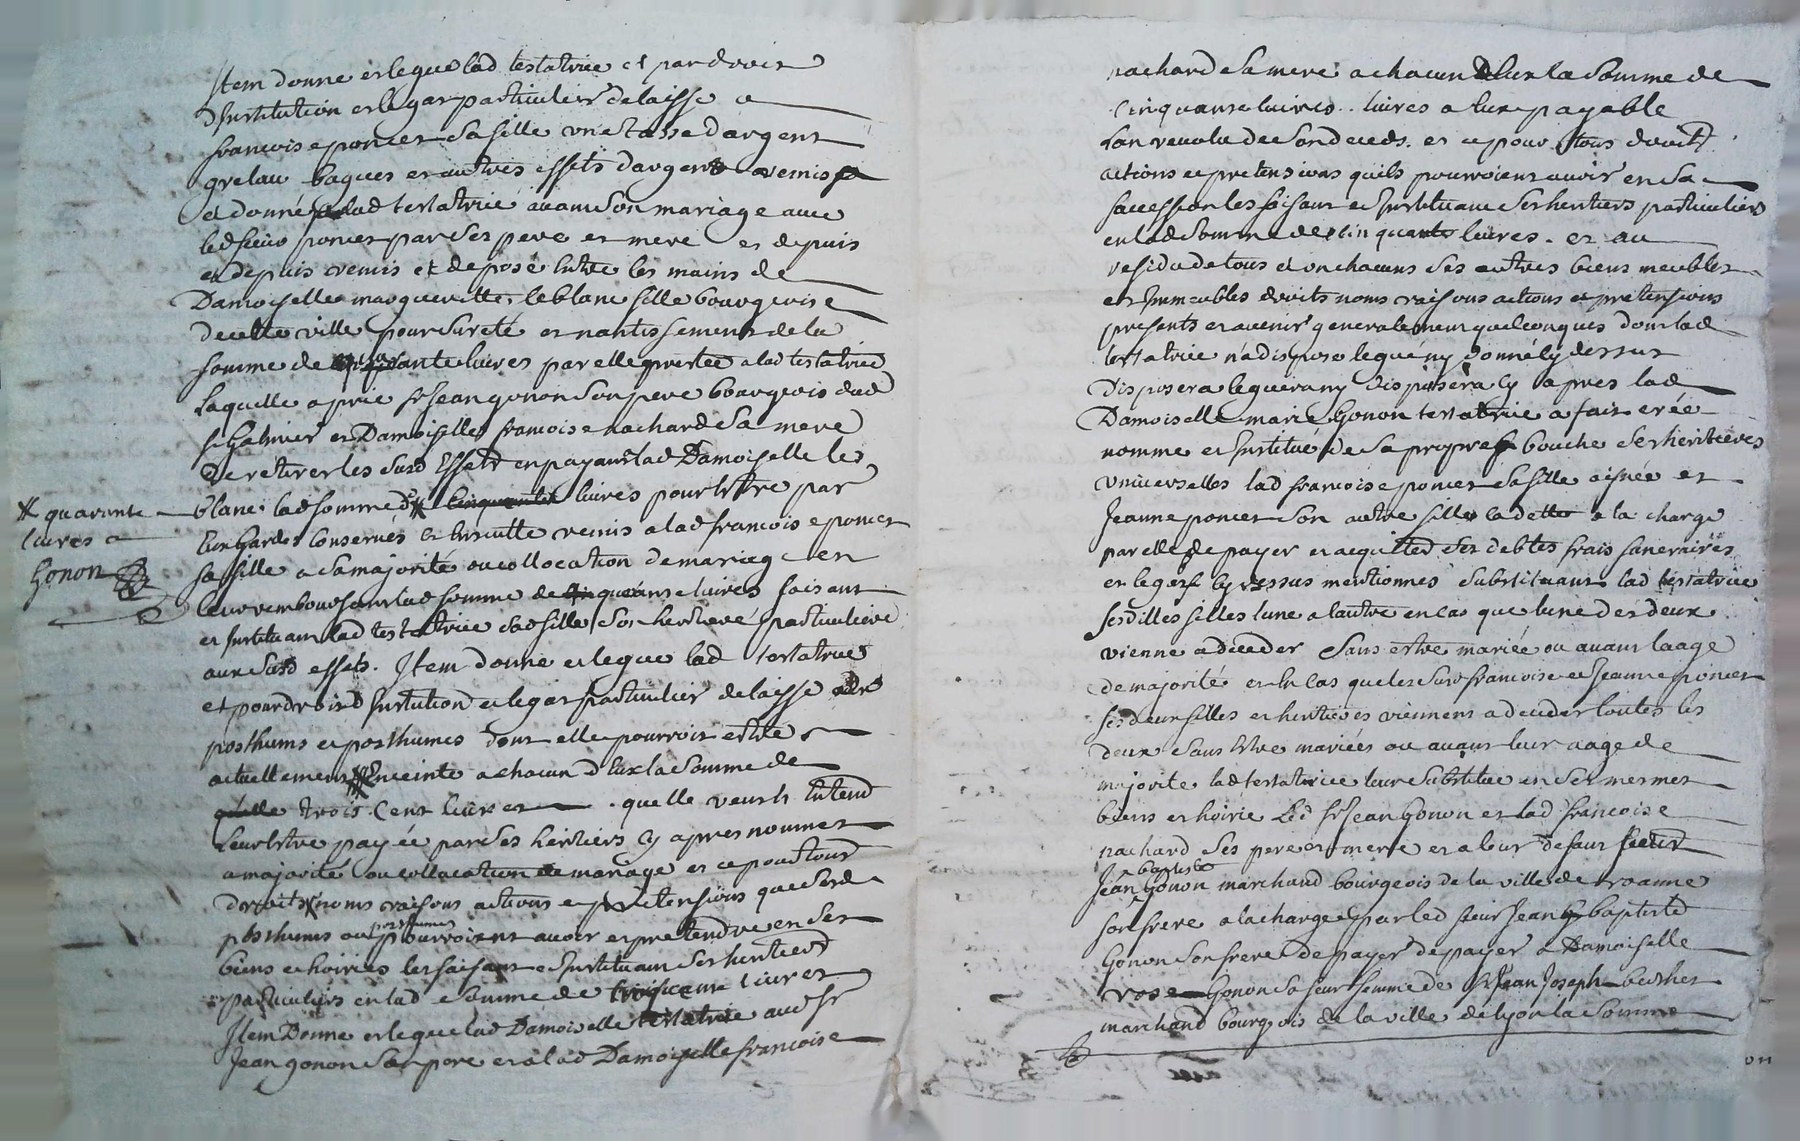 Item donne et legue lad testatrice et par droit
d'Institution et legat particulier delaisse a
francoise poncet sa fille une tasse d'argent
grelau bagues et autres effets d'argent remis
et donné a lad testatrice avant son mariage avec
led sieur poncet par ses pere et mere et depuis
et depuis remis et deposé entre les mains de
Damoiselle margueritte leblanc fille bourgeoise
de cette ville pour sureté et nantissement de la
somme de quarante livres par elle prestée a lad testatrice
Laquelle a prié sr Jean gonon son pere bourgeois dud
st Galmier et Damoiselle francoise nachard sa mere
De retirer les susd Effets en payant a lad Damoiselle le
blanc lad somme de livres pour estre par
* quarante
livres a
Gonon
Eux Gardés Conservés et Ensuitte remis a lad francoise poncet
sa fille a sa majorité ou collocation de mariage en
leur remboursant lad somme de quarante livres faisant
et Instituant lad testatrice sad fille son heritiere particuliere
aux susd effets. Item donne et legue lad testatrice
et pour droit d'Institution et legat particulier delaisse aux
posthums et posthumes dont elle pourroit estre
actuellement Enceinte a chacun d'Eux la somme de
trois Cent livres quelle veut et Entend
Leur Estre payée par ses heritiers cy apres nommes
a majorité ou collocation de mariage et ce pour tous
droits noms raisons actions et pretensions que sesd
posthums ou posthumes pourroient avoir et pretendre en ses
biens et hoiries les faisant et Instituant ses heritiers
particuliers en lad somme de trois cent livres
Item Donne et legue lad Damoiselle testatrice aud sr
Jean gonon son pere et a lad Damoiselle francoise
nachard sa mere a chacun d'Eux la somme de
cinquante livres livres a Eux payable
Lan revolu de son deceds. et ce pour tous droits
actions et pretensions quils pourroient avoir en sa
succession les faisant et Instituant ses heritiers particuliers
en lad somme de cinquante livres. et au
residu de tous et un chacuns ses autres biens meubles
et Immeubles droits noms raisons actions et pretensions
presents et avenir generalement quelconques dont lad
testatrice n'a disposé legué ny donné cy dessus
Disposera leguera ny disposera cy apres lad
Damoiselle marie Gonon testatrice a fait créé
nomme et Institué de sa propre bouche ses heritieres
universelles lad francoise poncet sa fille aisnée et
Jeanne poncet son autre fille cadette a la charge
par elle de payer et acquitter ses debtes frais faneraires
et legats cy dessus mentionnés Substituant lad testatrice
sesdittes filles lune a lautre en cas que lune des deux
vienne a deceder Sans estre mariée ou avant laage
de majorité et En Cas que les susd francoise et Jeanne poncet
ses deux filles et heritieres viennent a deceder toutes les
deux Sans Estre mariées ou avant leur aage de
majorité lad testatrice leur substitue en ses mesmes
biens et hoirie Led sr Jean Gonon et lad francoise
nachard ses pere et mere et a leur defaut sieur
Jean baptiste Gonon marchand bourgeois de la ville de roanne
son frere a la charge par led sieur Jean baptiste
Gonon son frere de payer de payer a Damoiselle
rose Gonon sa sœur femme de sr Jean Joseph
marchand bourgeois de la ville de Lyon la somme